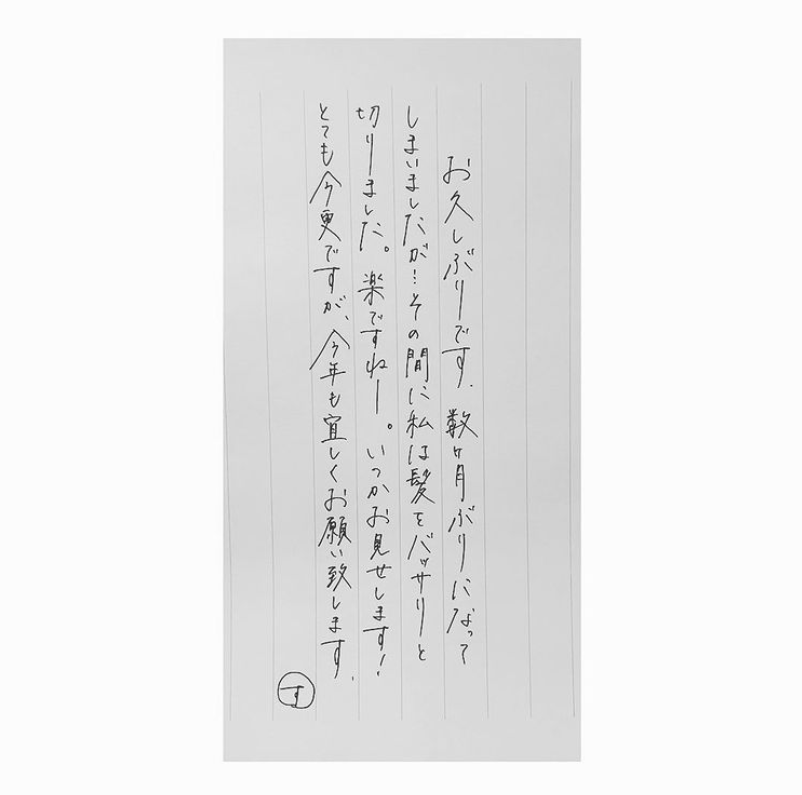 お久しぶりです．数ヶ月ぶりになって
しまいましたが…その間に私は髪をバッサリと
切りました。楽ですねー。いつかお見せします!
とても今更ですが、今年も宜しくお願い致します．
す